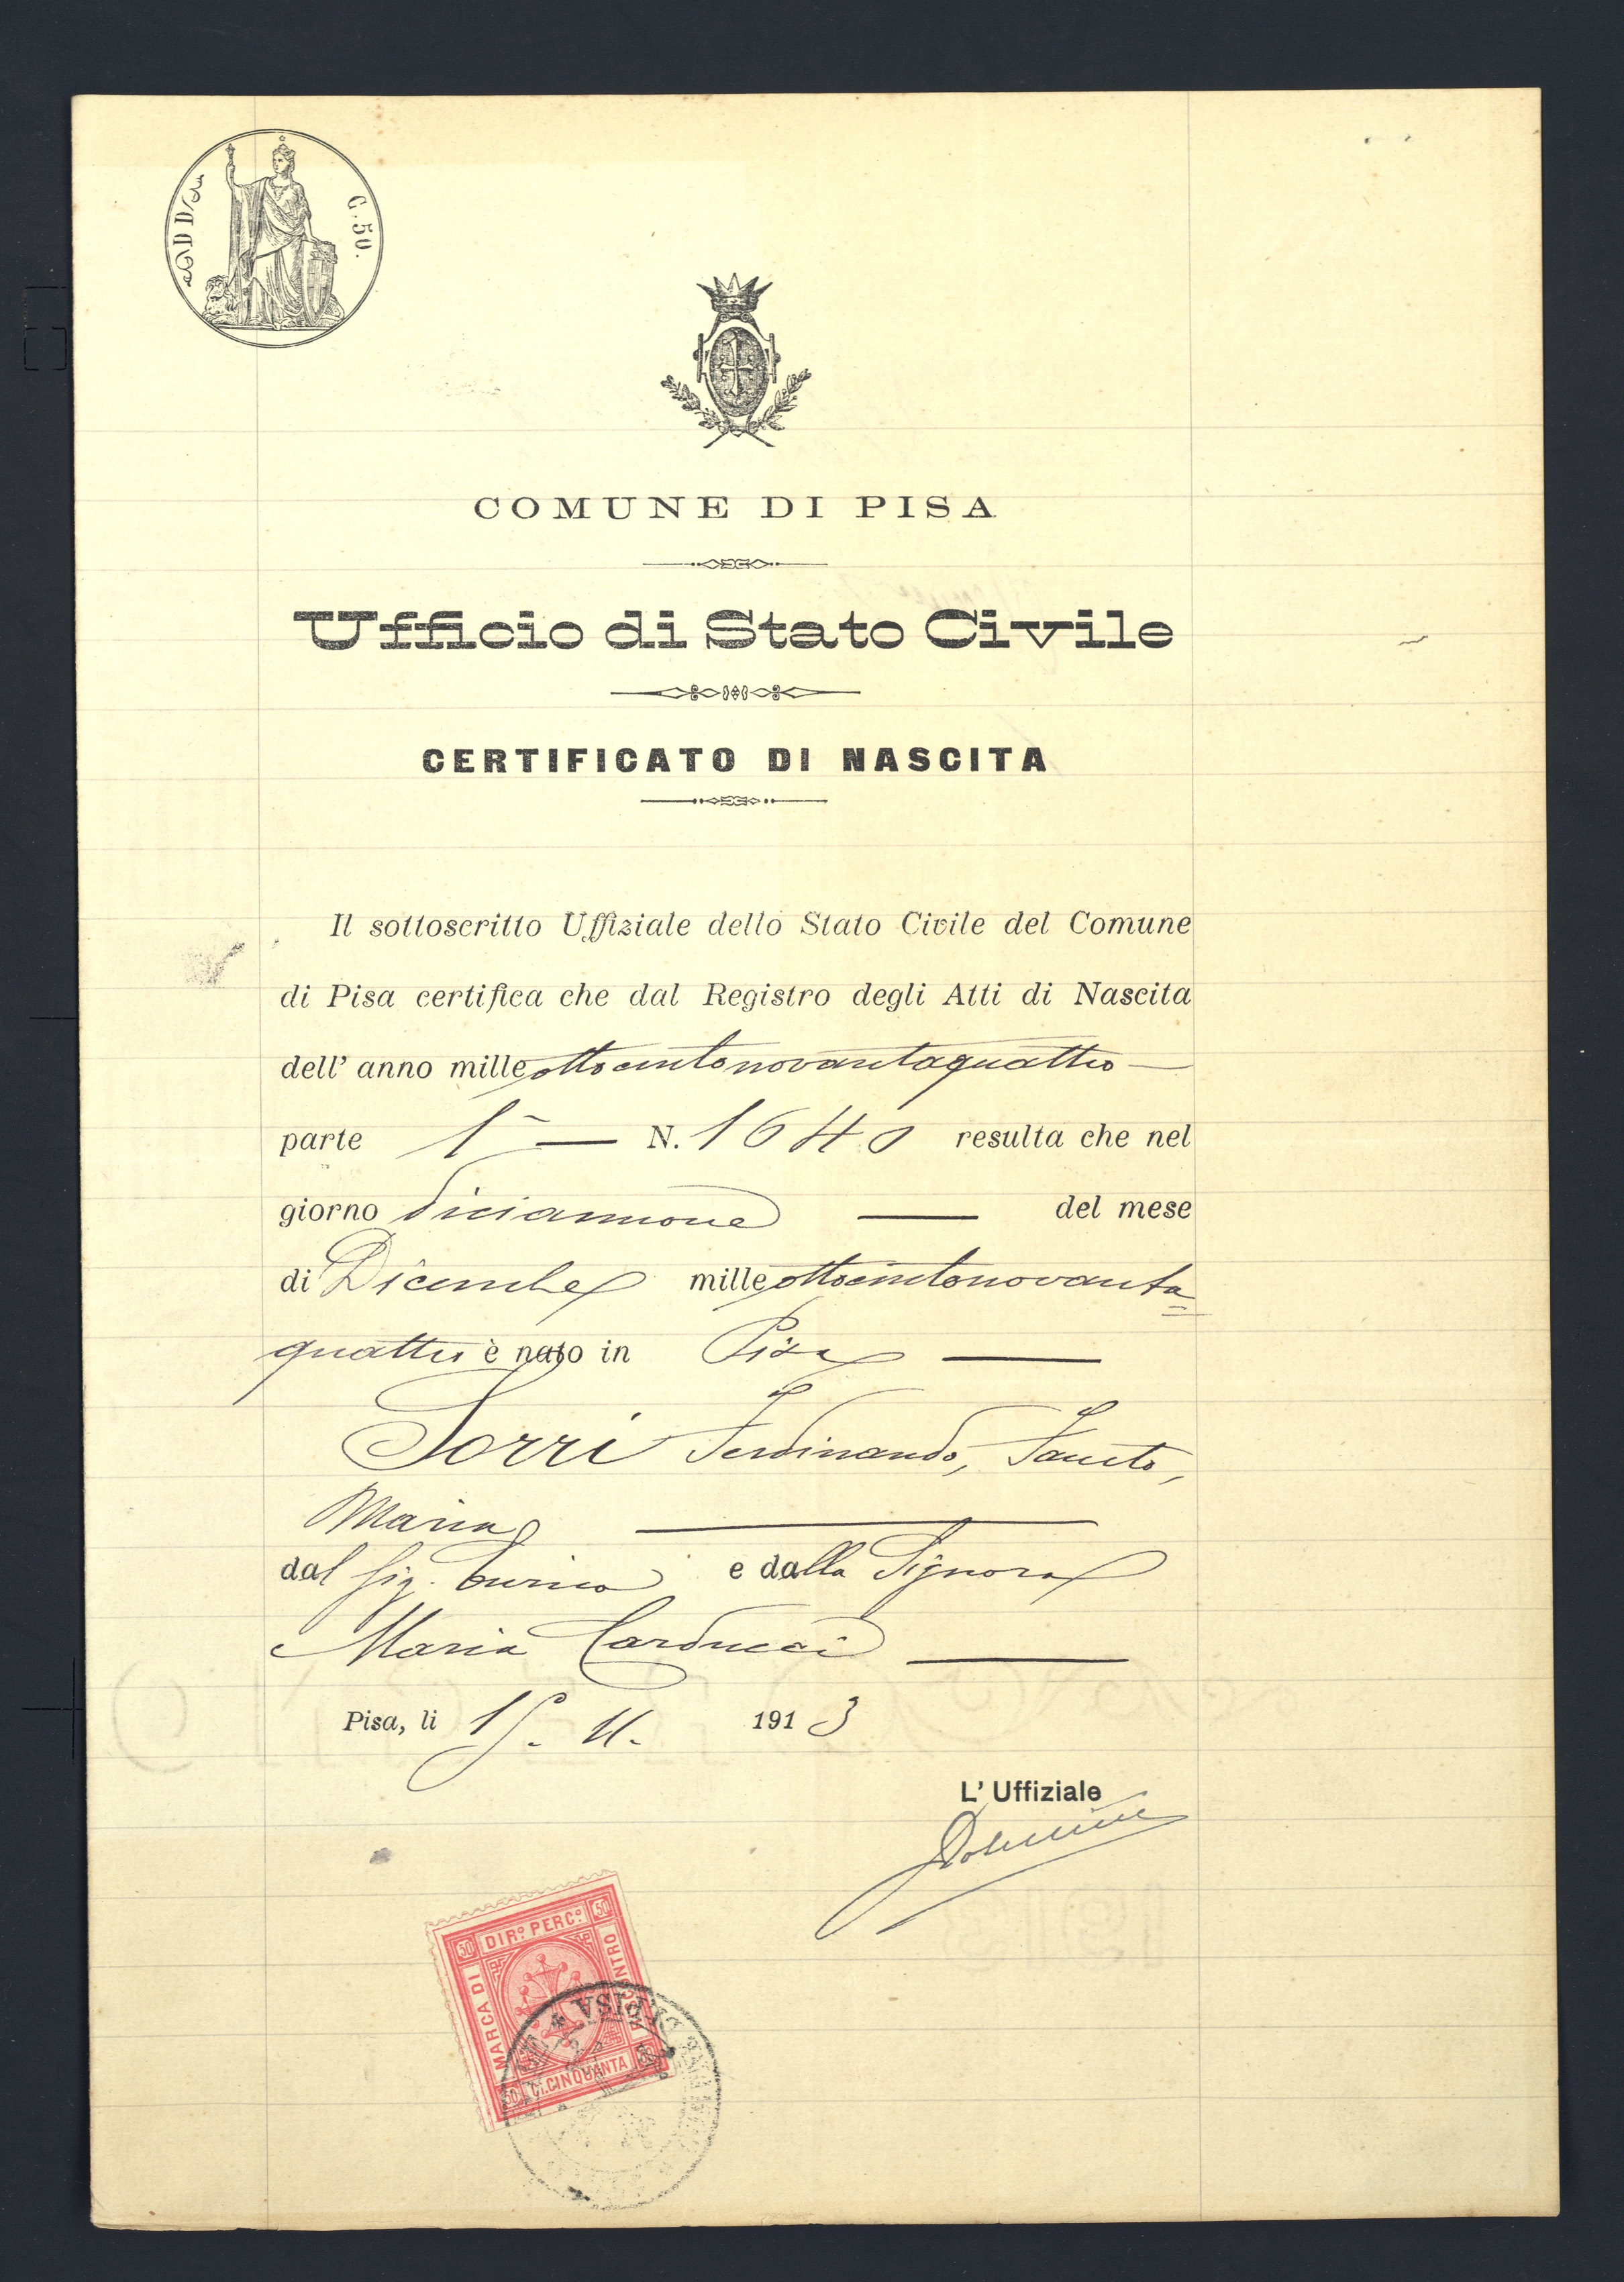 D D
C. 50.
COMUNE DI PISA
Ufficio di Stato Civile
CERTIFICATO DI NASCITA
Il sottoscritto Uffiziale dello Stato Civile del Comune
di Pisa certifica che dal Registro degli Atti di Nascita
dell' anno mille ottocentonovantaquattro
parte 1ª N. 1640 resulta che nel
giorno diciannove del mese
di Dicembre mille ottocentonovanta=
quattro è nato in Pisa
Sorri Ferdinando, Fausto,
Maria
dal Sig. Enrico e dalla Signora
Maria Carducci
Pisa, li 15. 11. 1913
L' Uffiziale
50 DIRº. PERCº. 50
MARCA DI
RISCONTRO
50 C. CINQUANTA 50
PISA